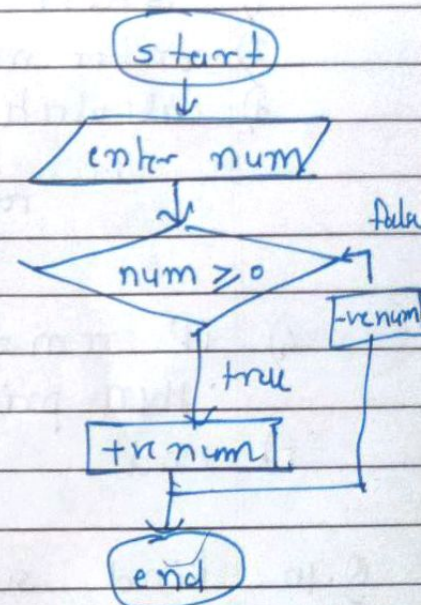 start
enter num
num ≥ 0
-ve num
true
+ve num
end